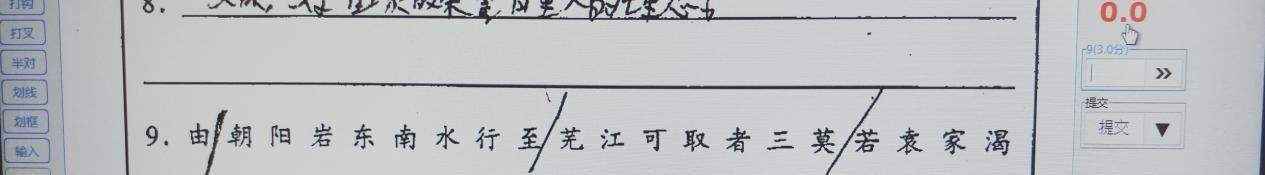 打钩
打叉
半对
划线
划框
输入
8.
9. 由朝阳岩东南水行至芜江可取者三莫若袁家渴
0.0
9(3.0分)
»
提交
提交 ▼